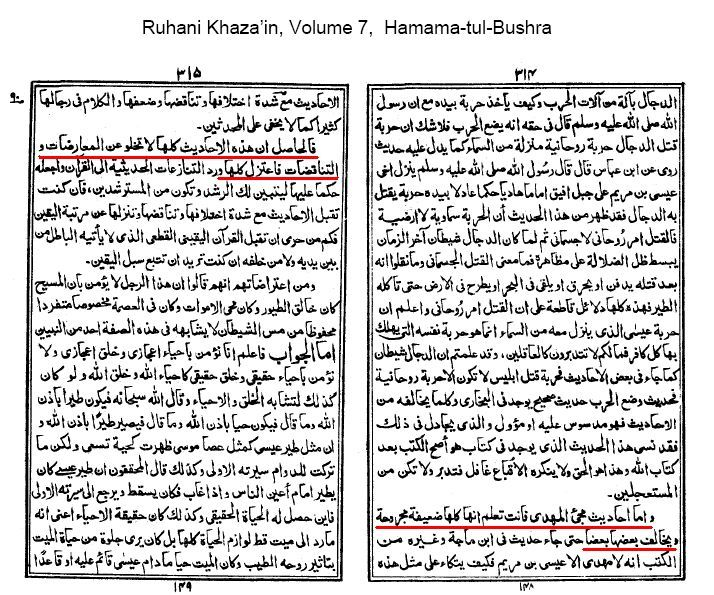 Ruhani Khaza’in, Volume 7,  Hamama-tul-Bushra
٣١٤
الدجال بآلة من آلات الحرب وكيف يأخذ حربة بيده مع ان رسول
الله صلى الله عليه وسلم قال فى حقه انه يضع الحرب فلاشك ان حربة
قتل الدجال حربة روحانية منزلة من السماء كما يدل عليه حديث
روى عن ابن عباس قال قال رسول الله صلى الله عليه وسلم ينزل اخى
عيسى بن مريم على جبل افيق اماما هاديا حكما عادلا بيده حربة يقتل
به الدجال فقد ظهر من هذا الحديث أن الحربة سماوية لا ارضية
فالقتل امر روحانى لا جسمانى ثم لما كان الدجال شيطان آخر الزمان
يبسط ظل الضلالة على مظاهره فما معنى القتل الجسمانى وما نقلوا انه
بعد قتله يدفن او يحرق او يلقى فى البحر او يطرح فى الارض حتى تاكله
الطير فهذه كلها دلائل قاطعة على ان القتل امر روحانى واعلم ان
حربة عيسى الذى ينزل معه من السماء انما هو حربة نفسه التى يهلك
بها كل كافر فما لكم لا تتدبرون كالعاقلين، وقد علمتم ان الدجال شيطان
كما جاء فى بعض الاحاديث فحربة قتل ابليس لا تكون الا حربة روحانية
فحديث وضع الحرب حديث صحيح يوجد فى البخارى وكلما يخالفه من
الاحاديث فهو مدسوس عليه او مؤول والذى يجادل فى ذلك
فقد نسى هذا الحديث الذى يوجد فى كتاب هو أصح الكتب بعد
كتاب الله وهذا هو الحق ولا ينكره الا غافل فتدبر ولا تكن من
المستعجلين.
واما احاديث مجئ المهدى فانت تعلم انها كلها ضعيفة مجروحة
ويخالف بعضها بعضا حتى جاء حديث فى ابن ماجة وغيره من
الكتب انه لا مهدى الا عيسى بن مريم فكيف يتكاء على مثل هذه
١٤٨
٣١٥
٩٠
الاحاديث مع شدة اختلافها وتناقضها وضعفها والكلام فى رجالها
كثير كما لا يخفى على المحدثين.
فالحاصل ان هذه الاحاديث كلها لا تخلو عن المعارضات و
التناقضات فاعتزل كلها ورد التنازعات الحديثية الى القرآن واجعله
حكما عليها ليتبين لك الرشد وتكون من المسترشدين، فان كنت
تقبل الاحاديث مع شدة اختلافها وتناقضها وتنزلها عن مرتبة اليقين
فكم من حرى ان تقبل القرآن اليقينى القطعى الذى لا يأتيه الباطل من
بين يديه ولا من خلفه ان كنت تريد ان تتبع سبل اليقين.
ومن اعتراضاتهم انهم قالوا ان هذا الرجل لا يؤمن بأن المسيح
كان خالق الطيور وكان محى الاموات وكان فى العصمة مخصوصا متفردا
محفوظا من مس الشيطان لا يشابهه فى هذه الصفة احد من النبيين
اما الجواب فاعلم اننا نؤمن باحياء اعجازى وخلق اعجازى ولا
نؤمن باحياء حقيقى وخلق حقيقى كاحياء الله وخلق الله ولو كان
كذلك لتشابه الخلق والاحياء وقال الله سبحانه فيكون طيرا بأذن
الله وما قال فيكون حيا باذن الله وما قال فيصير طيرا باذن الله و
ان مثل طير عيسى كمثل عصا موسى ظهرت كحية تسعى ولكن ما
تركت للدوام سيرته الاولى وكذلك قال المحققون ان طير عيسى كان
يطير امام أعين الناس واذا غاب فكان يسقط ويرجع الى سيرته الاولى
فاين حصل له الحياة الحقيقى وكذلك كان حقيقة الاحياء اعنى انه
ما رد الى ميت قط لوازم الحياة كلها بل كان يرى جلوة من حياة الميت
بتاثير روحه الطيب وكان الميت حيا ما دام عيسى قائم عليه او قاعدًا
١٤٩